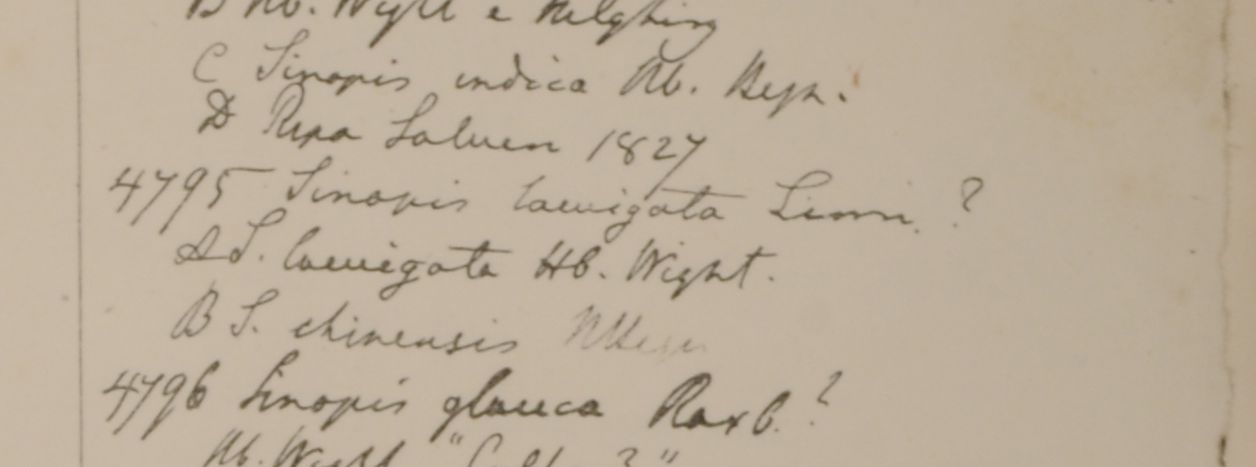 B Hb. Wight e Nilghiry
C Sinapis indica Hb. Heyn.
D Ripa Saluen 1827
4795 Sinapis laevigata Linn. ?
A S. laevigata Hb. Wight.
B S. chinensis
4796 Sinapis glauca Roxb. ?
Hb. Wight